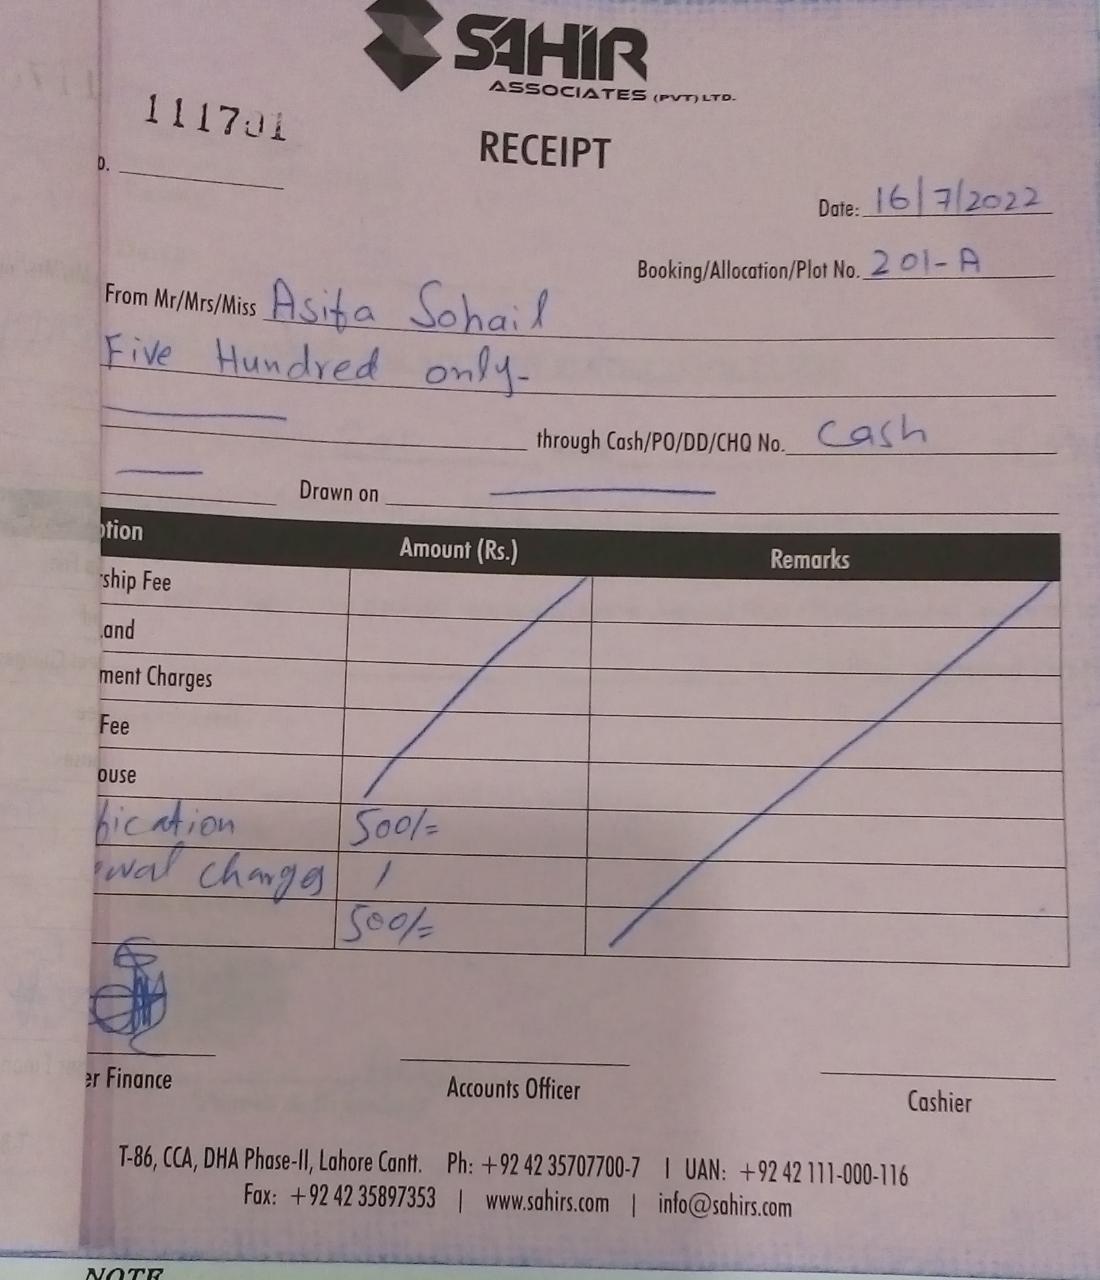 SAHIR
ASSOCIATES (PVT) LTD.
111701
RECEIPT
o.
Date: 16/7/2022
Booking/Allocation/Plot No. 201-A
From Mr/Mrs/Miss Asifa Sohail
Five Hundred only-
through Cash/PO/DD/CHQ No. Cash
Drawn on
ption Amount (Rs.) Remarks
rship Fee
Land
ment Charges
Fee
ouse
fication 500/=
ewal charges /
500/=
er Finance Accounts Officer Cashier
T-86, CCA, DHA Phase-II, Lahore Cantt. Ph: +92 42 35707700-7 | UAN: +92 42 111-000-116
Fax: +92 42 35897353 | www.sahirs.com | info@sahirs.com
NOTE